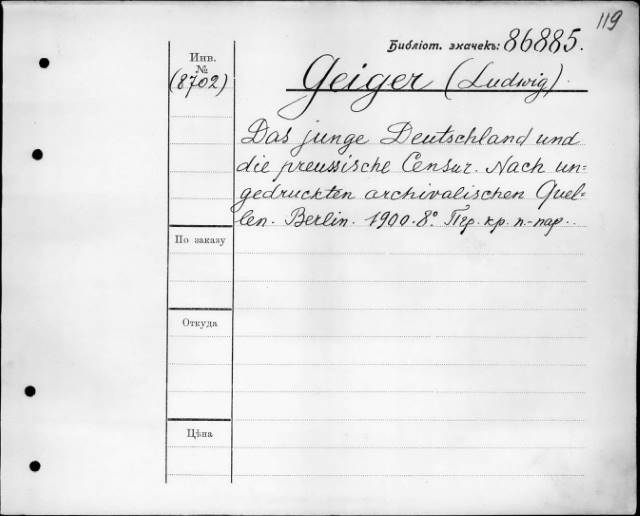 119
Библіот. значекъ: 86885.
Инв.
№
(8702)
Geiger (Ludwig).
Das junge Deutschland und
die preussische Censur. Nach un=
gedruckten archivalischen Quel=
len. Berlin. 1900. 8º. Пер. кр. п.-пар..
По заказу
Откуда
Цѣна